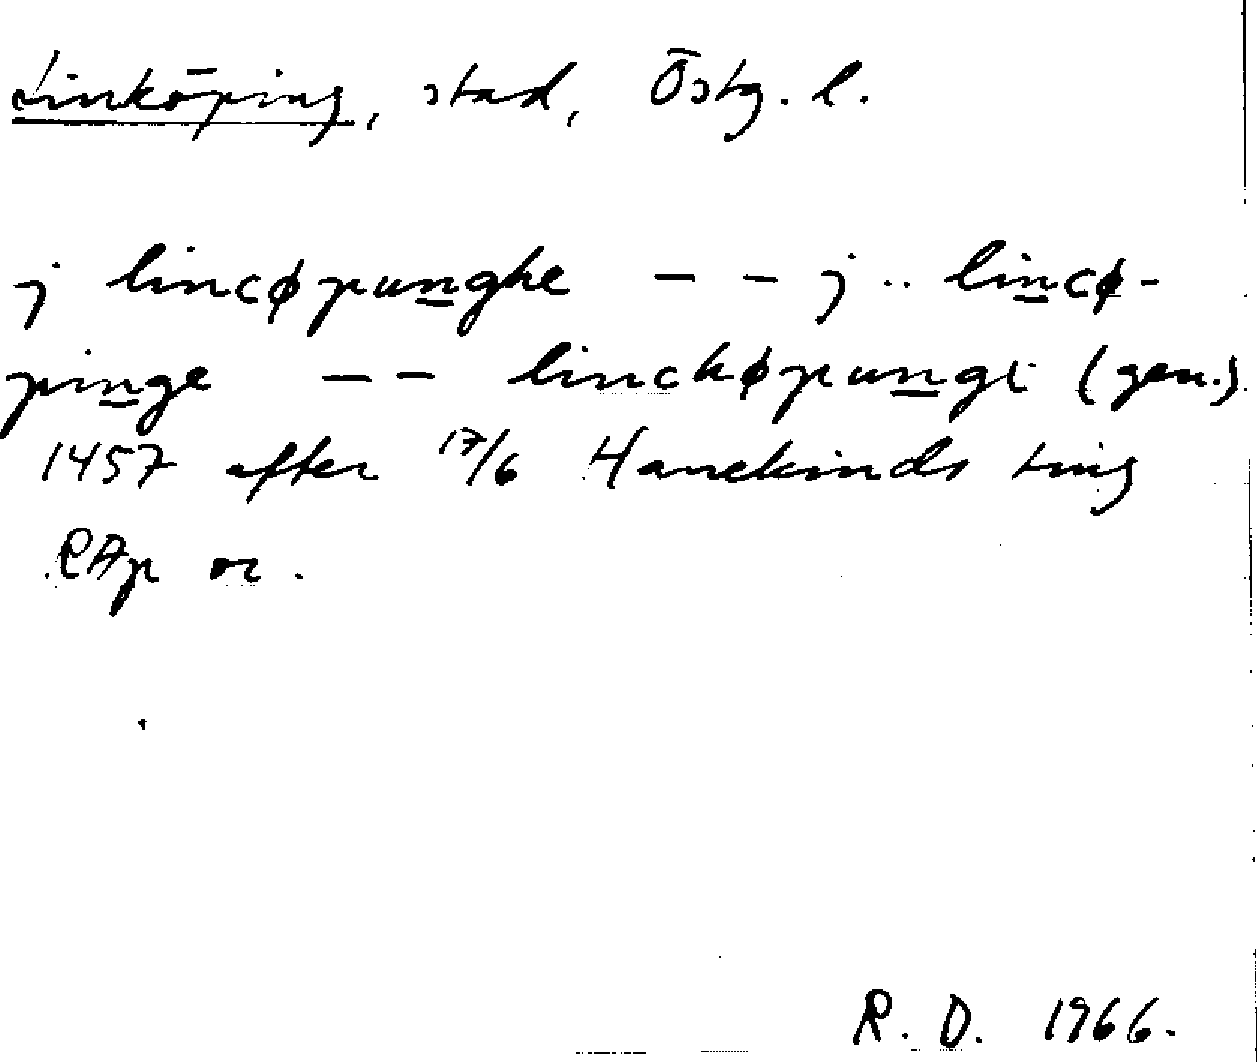 Linköping, stad, Östg. l.
j lincøpunghe – – j .. lincø-
pinge – – linckøpungi (gen.)
1457 efter 17/6 Hanekinds ting
RAp or.
R. D. 1966.